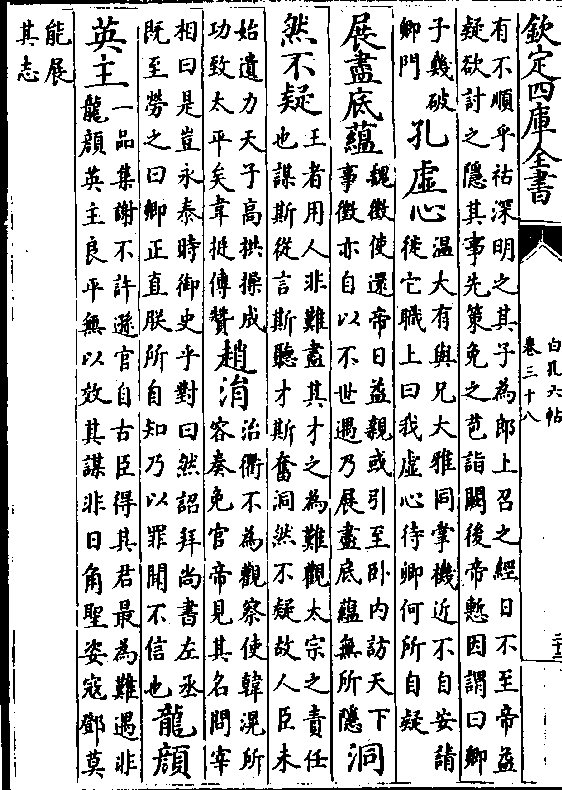 欽定四庫全書
白孔六帖
卷三十八
有不順乎祐深明之其子為郎上召之經日不至帝益
疑欲討之隱其事先策免之芭詣闕後帝慙因謂曰卿
子幾破
卿門
孔虛心
溫大有與兄大雅同掌機近不自安請
徙它職上曰我虛心待卿何所自疑
展盡底蘊
魏徵使還帝日益親或引至卧內訪天下
事徵亦自以不世遇乃展盡底蘊無所隱
洞
然不疑
王者用人非難盡其才之為難觀太宗之責任
也謀斯從言斯聽才斯奮洞然不疑故人臣未
始遺力天子高拱操成
功致太平矣韋挺傳贊
趙涓
治衢不為觀察使韓滉所
容奏免官帝見其名問宰
相曰是豈永泰時御史乎對曰然詔拜尚書左丞
既至勞之曰卿正直朕所自知乃以罪聞不信也
龍顏
英主
一品集謝不許遜官自古臣得其君最為難遇非
龍顏英主良平無以效其謀非日角聖姿寇鄧莫
能展
其志